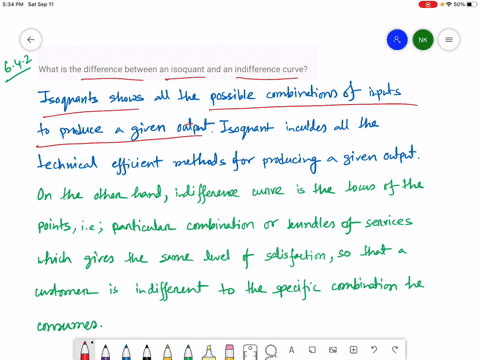 5:34 PM Sat Sep 11
50%
NK
6.4.2
What is the difference between an isoquant and an indifference curve?
Isoquants shows all the possible combinations of inputs
to produce a given output. Isoquant inculdes all the
technical efficient methods for producing a given output.
On the other hand, indifference curve is the locus of the
points, i.e; particular combination or bundles of services
which gives the same level of satisfaction, so that a
customer is indifferent to the specific combination he
consumes.